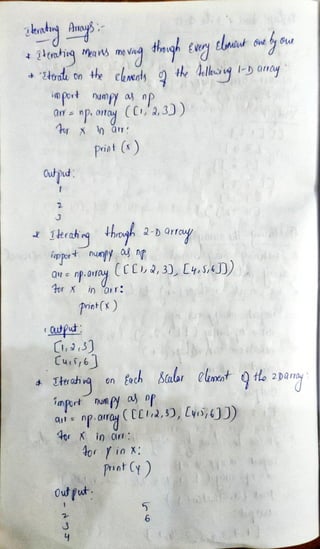 Iterating Arrays :-
* Iterating means moving through every Element one by one
* Iterate on the elements of the following 1-D array
import numpy as np
arr = np.array ([1, 2, 3])
for x in arr:
print (x)
Output:
1
2
3
* Iterating through 2-D array
import numpy as np
arr = np.array ([[1, 2, 3], [4, 5, 6]])
for x in arr:
print(x)
output:
[1, 2, 3]
[4, 5, 6]
* Iterating on Each Scalar element of the 2D array
import numpy as np
arr = np.array ([[1, 2, 3], [4, 5, 6]])
for x in arr:
for y in x:
print (y)
output:
1 5
2 6
3
4